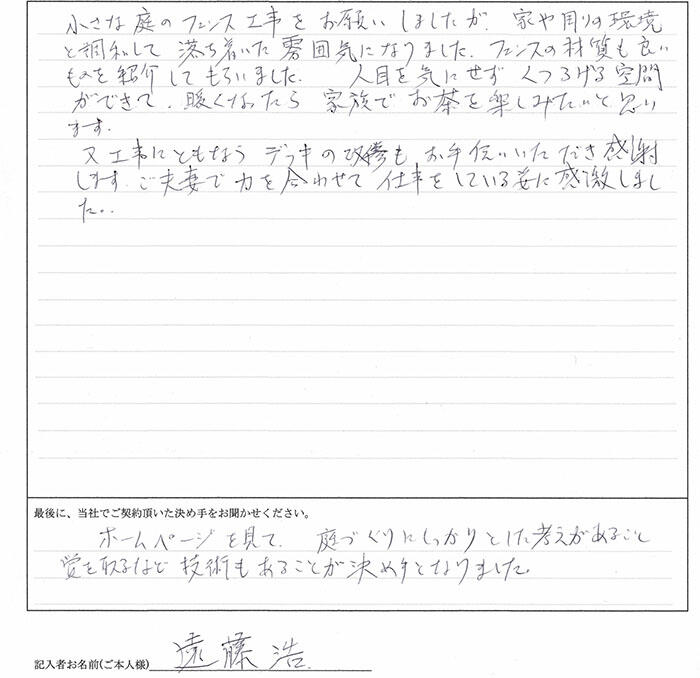 小さな庭のフェンス工事をお願いしましたが、家や周りの環境
と調和して落ち着いた雰囲気になりました。フェンスの材質も良い
ものを紹介してもらいました。 人目を気にせずくつろげる空間
ができて、暖くなったら 家族でお茶を楽しみたいと思い
ます。
又工事にともなう デッキの改修もお手伝いいただき感謝
します。ご夫妻で力を合わせて仕事をしている姿に感激しまし
た。
最後に、当社でご契約頂いた決め手をお聞かせください。
ホームページを見て、庭づくりにしっかりとした考えがあること
賞を取るなど技術もあることが決め手となりました。
記入者お名前(ご本人様) 遠藤 浩